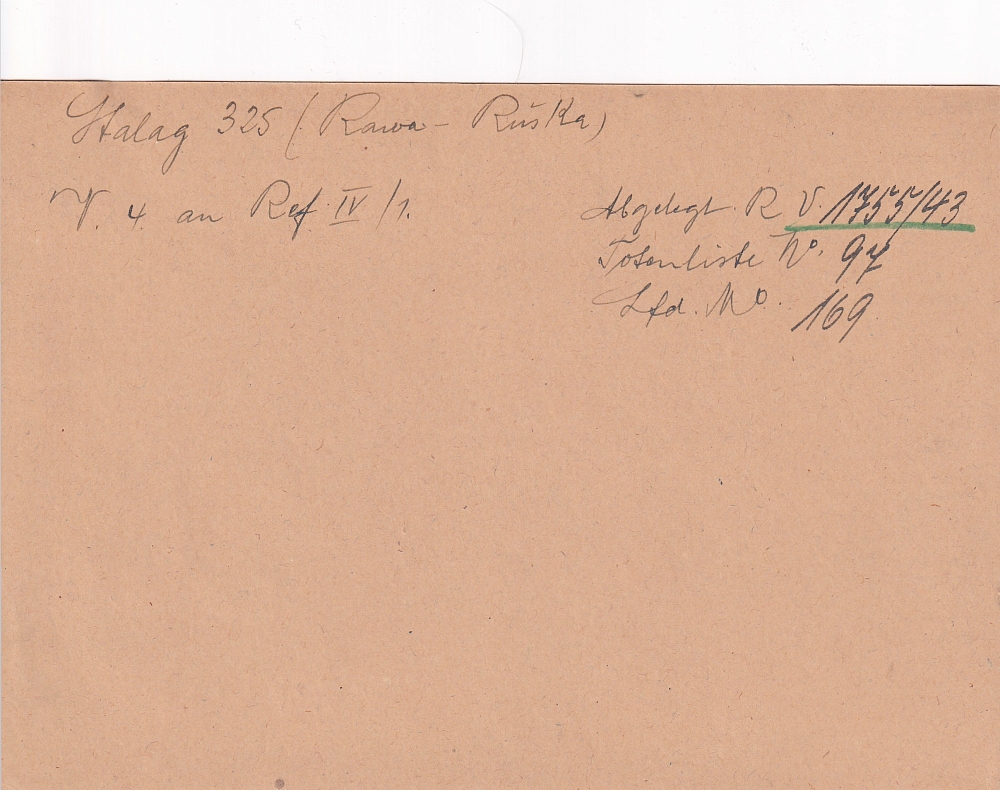 Stalag 325 (Rawa-Ruska)
V. 4. an Ref. IV/1.
Abgelegt R V. 1755/43
Totenliste No. 97
Lfd. No. 169